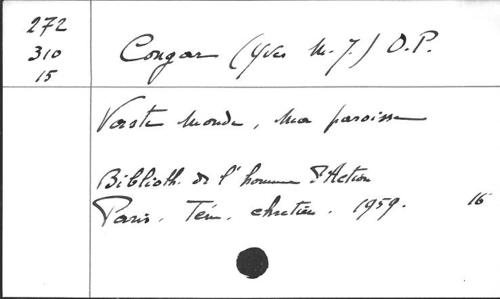 272
310
15
Congar (Yves M.J.) O.P.
Vaste Monde, Ma paroisse
Biblioth. de l'homme d'Action
Paris. Tém. chrétien. 1959. 16